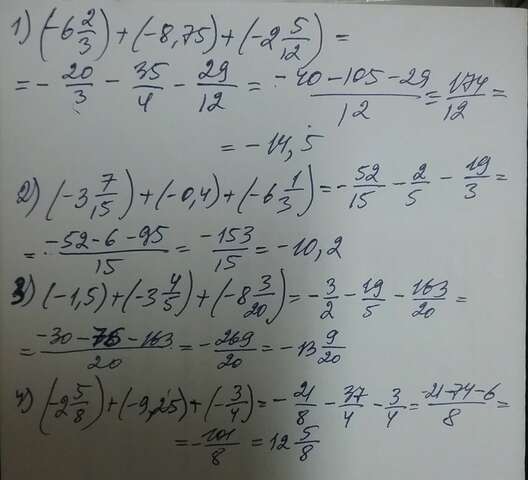 1) (-6 2/3) + (-8,75) + (-2 5/12) =
= - 20/3 - 35/4 - 29/12 = (-40-105-29)/12 = 174/12 =
= -14,5
2) (-3 7/15) + (-0,4) + (-6 1/3) = - 52/15 - 2/5 - 19/3 =
= (-52-6-95)/15 = -153/15 = -10,2
3) (-1,5) + (-3 4/5) + (-8 3/20) = - 3/2 - 19/5 - 163/20 =
= (-30-76-163)/20 = -269/20 = -13 9/20
4) (-2 5/8) + (-9,25) + (-3/4) = - 21/8 - 37/4 - 3/4 = (-21-74-6)/8 =
= -101/8 = 12 5/8